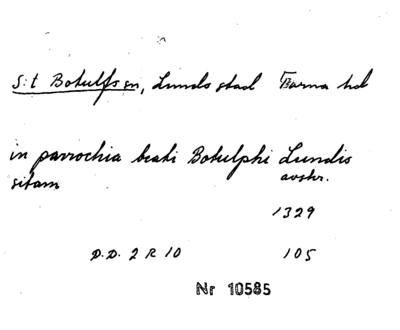 S:t Botulfs sn, Lunds stad Torna hd
in parrochia beati Botulphi Lundis
sitam avskr.
1329
D.D. 2 R 10 105
Nr 10585